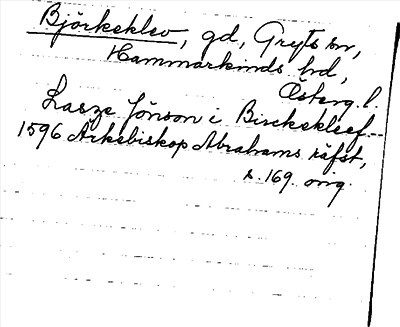 Björkeklev, gd, Gryts sn,
Hammarkinds hd,
Österg. l.
Lasze Jönson i Birckekleef--
1596 Ärkebiskop Abrahams räfst,
s. 169. orig.